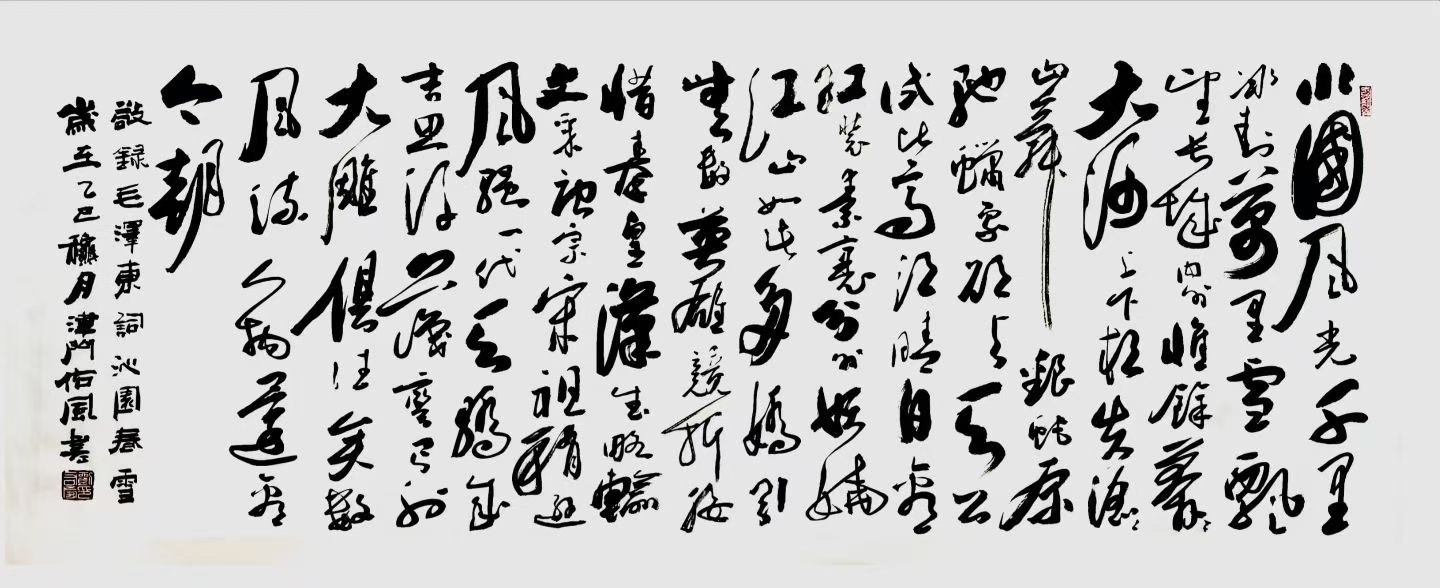 北國風光千里
冰封萬里雪飄
望長城內外惟餘莽莽
大河上下頓失滔滔
山舞銀蛇原
馳蠟象欲與天公
試比高須晴日看
紅裝素裹分外妖嬈
江山如此多嬌引
無數英雄競折腰
惜秦皇漢武略輸
文采唐宗宋祖稍遜
風騷一代天驕成
吉思汗只識彎弓射
大雕俱往矣數
風流人物還看
今朝
敬錄毛澤東詞沁園春雪
歲在乙巳穐月津門佑風書